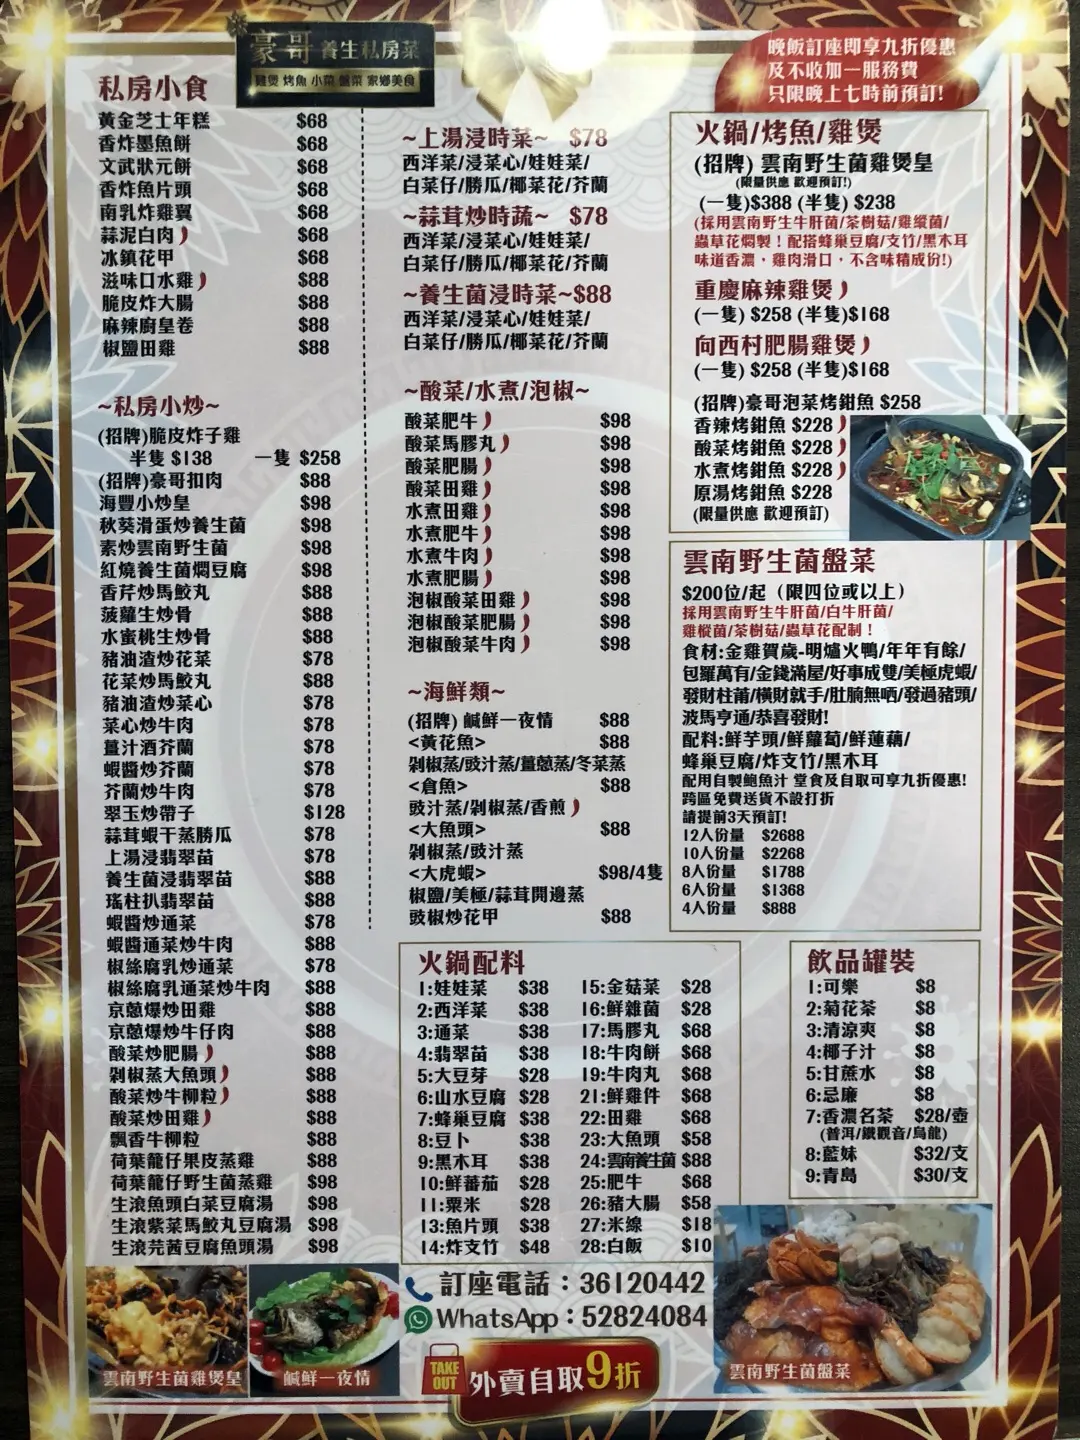 豪哥 養生私房菜
雞煲 烤魚 小菜 盤菜 家鄉美食
晚飯訂座即享九折優惠
及不收加一服務費
只限晚上七時前預訂!
私房小食
黃金芝士年糕 $68
香炸墨魚餅 $68
文武狀元餅 $68
香炸魚片頭 $68
南乳炸雞翼 $68
蒜泥白肉 $68
冰鎮花甲 $68
滋味口水雞 $88
脆皮炸大腸 $88
麻辣廚皇卷 $88
椒鹽田雞 $88
~私房小炒~
(招牌)脆皮炸子雞
半隻 $138 一隻 $258
(招牌)豪哥扣肉 $88
海豐小炒皇 $98
秋葵滑蛋炒養生菌 $98
素炒雲南野生菌 $98
紅燒養生菌燜豆腐 $98
香芹炒馬鮫丸 $88
菠蘿生炒骨 $88
水蜜桃生炒骨 $88
豬油渣炒花菜 $78
花菜炒馬鮫丸 $88
豬油渣炒菜心 $78
菜心炒牛肉 $78
薑汁酒芥蘭 $78
蝦醬炒芥蘭 $78
芥蘭炒牛肉 $78
翠玉炒帶子 $128
蒜茸蝦干蒸勝瓜 $78
上湯浸翡翠苗 $78
養生菌浸翡翠苗 $88
瑤柱扒翡翠苗 $88
蝦醬炒通菜 $78
蝦醬通菜炒牛肉 $88
椒絲腐乳炒通菜 $78
椒絲腐乳通菜炒牛肉 $88
京蔥爆炒田雞 $88
京蔥爆炒牛仔肉 $88
酸菜炒肥腸 $88
剁椒蒸大魚頭 $88
酸菜炒牛柳粒 $88
酸菜炒田雞 $88
飄香牛柳粒 $88
荷葉籠仔果皮蒸雞 $88
荷葉籠仔野生菌蒸雞 $98
生滾魚頭白菜豆腐湯 $98
生滾紫菜馬鮫丸豆腐湯 $98
生滾芫茜豆腐魚頭湯 $98
~上湯浸時菜~ $78
西洋菜/浸菜心/娃娃菜/
白菜仔/勝瓜/椰菜花/芥蘭
~蒜茸炒時蔬~ $78
西洋菜/浸菜心/娃娃菜/
白菜仔/勝瓜/椰菜花/芥蘭
~養生菌浸時菜~$88
西洋菜/浸菜心/娃娃菜/
白菜仔/勝瓜/椰菜花/芥蘭
~酸菜/水煮/泡椒~
酸菜肥牛 $98
酸菜馬膠丸 $98
酸菜肥腸 $98
酸菜田雞 $98
水煮田雞 $98
水煮肥牛 $98
水煮牛肉 $98
水煮肥腸 $98
泡椒酸菜田雞 $98
泡椒酸菜肥腸 $98
泡椒酸菜牛肉 $98
~海鮮類~
(招牌) 鹹鮮一夜情 $88
<黃花魚> $88
剁椒蒸/豉汁蒸/薑蔥蒸/冬菜蒸
<倉魚> $88
豉汁蒸/剁椒蒸/香煎
<大魚頭> $88
剁椒蒸/豉汁蒸
<大虎蝦> $98/4隻
椒鹽/美極/蒜茸開邊蒸
豉椒炒花甲 $88
火鍋/烤魚/雞煲
(招牌) 雲南野生菌雞煲皇
(限量供應 歡迎預訂!)
(一隻)$388 (半隻) $238
(採用雲南野生牛肝菌/茶樹菇/雞縱菌/
蟲草花燜製！配搭蜂巢豆腐/支竹/黑木耳
味道香濃，雞肉滑口，不含味精成份!)
重慶麻辣雞煲
(一隻) $258 (半隻)$168
向西村肥腸雞煲
(一隻) $258 (半隻)$168
(招牌)豪哥泡菜烤鉗魚 $258
香辣烤鉗魚 $228
酸菜烤鉗魚 $228
水煮烤鉗魚 $228
原湯烤鉗魚 $228
(限量供應 歡迎預訂)
雲南野生菌盤菜
$200位/起（限四位或以上）
採用雲南野生牛肝菌/白牛肝菌/
雞樅菌/茶樹菇/蟲草花配制！
食材:金雞賀歲-明爐火鴨/年年有餘/
包羅萬有/金錢滿屋/好事成雙/美極虎蝦/
發財柱莆/橫財就手/肚腩無哂/發過豬頭/
波馬亨通/恭喜發財!
配料:鮮芋頭/鮮蘿蔔/鮮蓮藕/
蜂巢豆腐/炸支竹/黑木耳
配用自製鮑魚汁 堂食及自取可享九折優惠!
跨區免費送貨不設打折
請提前3天預訂!
12人份量 $2688
10人份量 $2268
8人份量 $1788
6人份量 $1368
4人份量 $888
火鍋配料
1:娃娃菜 $38
2:西洋菜 $38
3:通菜 $38
4:翡翠苗 $38
5:大豆芽 $28
6:山水豆腐 $28
7:蜂巢豆腐 $38
8:豆卜 $38
9:黑木耳 $38
10:鮮蕃茄 $28
11:粟米 $28
13:魚片頭 $38
14:炸支竹 $48
15:金菇菜 $28
16:鮮雜菌 $28
17:馬膠丸 $68
18:牛肉餅 $68
19:牛肉丸 $68
21:鮮雞件 $68
22:田雞 $68
23:大魚頭 $58
24:雲南養生菌 $88
25:肥牛 $68
26:豬大腸 $58
27:米線 $18
28:白飯 $10
飲品罐裝
1:可樂 $8
2:菊花茶 $8
3:清涼爽 $8
4:椰子汁 $8
5:甘蔗水 $8
6:忌廉 $8
7:香濃名茶 $28/壺
(普洱/鐵觀音/烏龍)
8:藍妹 $32/支
9:青島 $30/支
訂座電話：36120442
WhatsApp：52824084
TAKE
OUT
外賣自取9折
雲南野生菌雞煲皇
鹹鮮一夜情
雲南野生菌盤菜